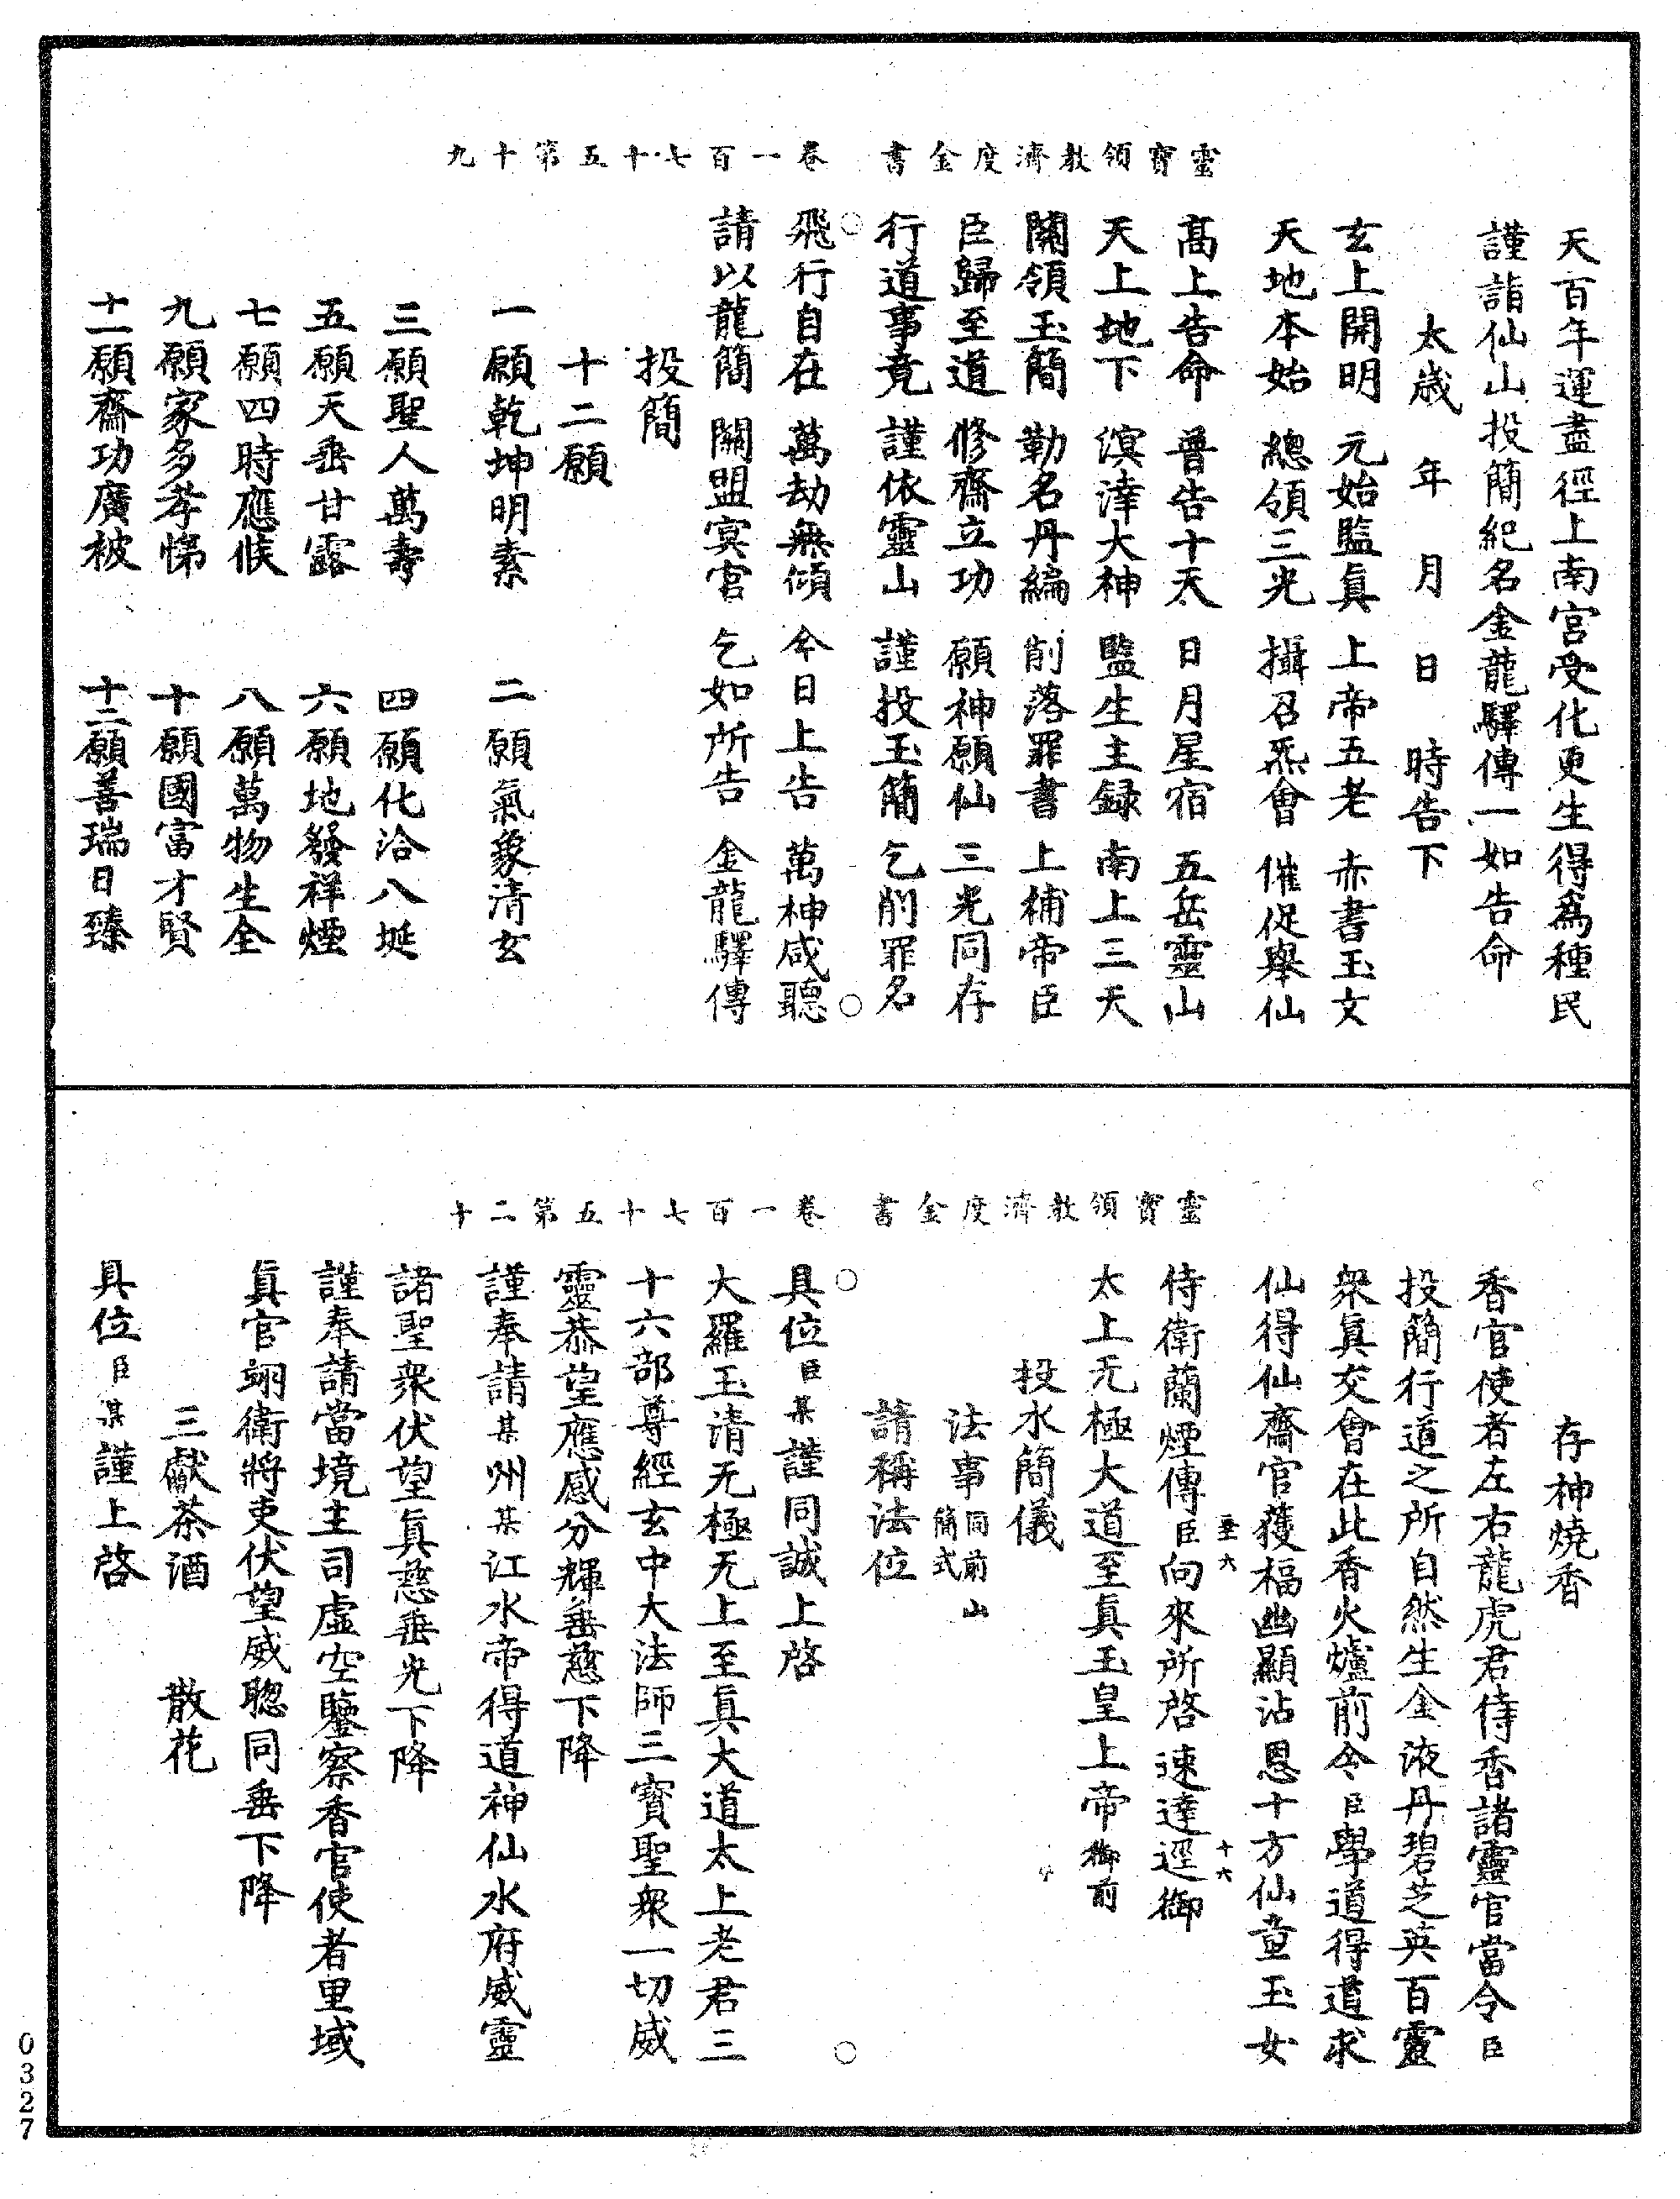 天百年運盡徑上南宮受化更生得爲種民
謹詣仙山投簡紀名金龍驛傳一如告命
太歲　年　月　日　時告下
玄上開明　元始監眞　上帝五老　赤書玉文
天地本始　總領三光　攝召炁會　催促舉仙
高上告命　普告十天　日月星宿　五岳靈山
天上地下　溟涬大神　監生主録　南上三天
關領玉簡　勒名丹編　削落罪書　上補帝臣
臣歸至道　修齋立功　願神願仙　三光同存
行道事竟　謹依靈山　謹投玉簡　乞削罪名
靈寶領教濟度金書　卷一百七十五第十九
飛行自在　萬劫無傾　今日上告　萬神咸聽
請以龍簡　關盟冥官　乞如所告　金龍驛傳
投簡
十二願
一願乾坤明素　二願氣象清玄
三願聖人萬壽　四願化洽八埏
五願天垂甘露　六願地發祥煙
七願四時應候　八願萬物生全
九願家多孝悌　十願國富才賢
十一願齋功廣被　十二願善瑞日臻
存神燒香
香官使者左右龍虎君侍香諸靈官當令臣
投簡行道之所自然生金液丹碧芝英百靈
衆眞交會在此香火爐前令臣學道得道求
仙得仙齋官獲福幽顯沾恩十方仙童玉女
侍衛蘭煙傳臣向來所啓速達逕御
太上无極大道至眞玉皇上帝御前
投水簡儀
法事同前山簡式
請稱法位
靈寶領教濟度金書　卷一百七十五第二十
具位臣某謹同誠上啓
大羅玉清无極无上至眞大道太上老君三
十六部尊經玄中大法師三寶聖衆一切威
靈恭望應感分輝垂慈下降
謹奉請某州某江水帝得道神仙水府威靈
諸聖衆伏望眞慈垂光下降
謹奉請當境主司虛空鑒察香官使者里域
眞官翊衛將吏伏望威聰同垂下降
三獻茶酒　散花
具位臣某謹上啓
0327